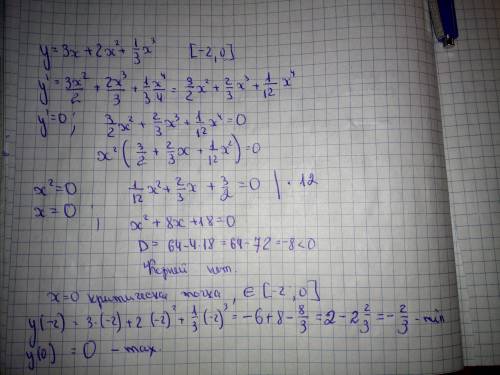 y = 3x + 2x² + 1/3 x³ [-2,0]
y' = 3x²/2 + 2x³/3 + 1/3 x⁴/4 = 3/2 x² + 2/3 x³ + 1/12 x⁴
y' = 0; 3/2 x² + 2/3 x³ + 1/12 x⁴ = 0
x² (3/2 + 2/3 x + 1/12 x²) = 0
x² = 0 1/12 x² + 2/3 x + 3/2 = 0 | · 12
x = 0 ; x² + 8x + 18 = 0
D = 64 - 4·18 = 64 - 72 = -8 < 0
Корней нет.
x = 0 критическа точка, ∈ [-2,0]
y(-2) = 3·(-2) + 2·(-2)² + 1/3 (-2)³ = -6 + 8 - 8/3 = 2 - 2 2/3 = -2/3 - min
y(0) = 0 - max.